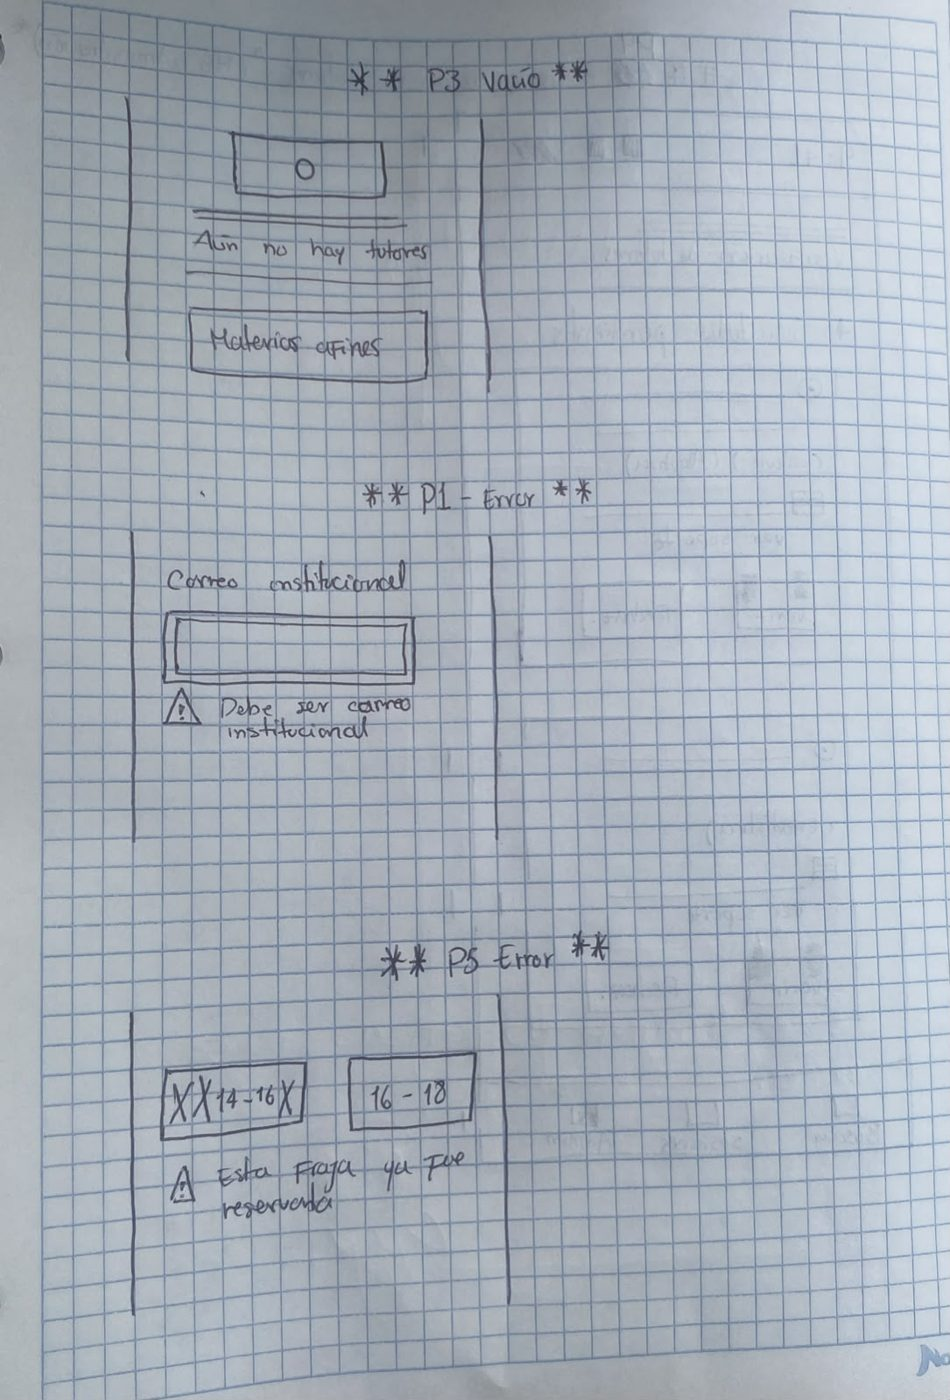 ** P3 Vacío **
Aún no hay tutores
Materias afines
** P1 - Error **
Correo institucional
Debe ser correo
institucional
** P5 Error **
XX14-16X
16 - 18
Esta Franja ya Fue
reservada